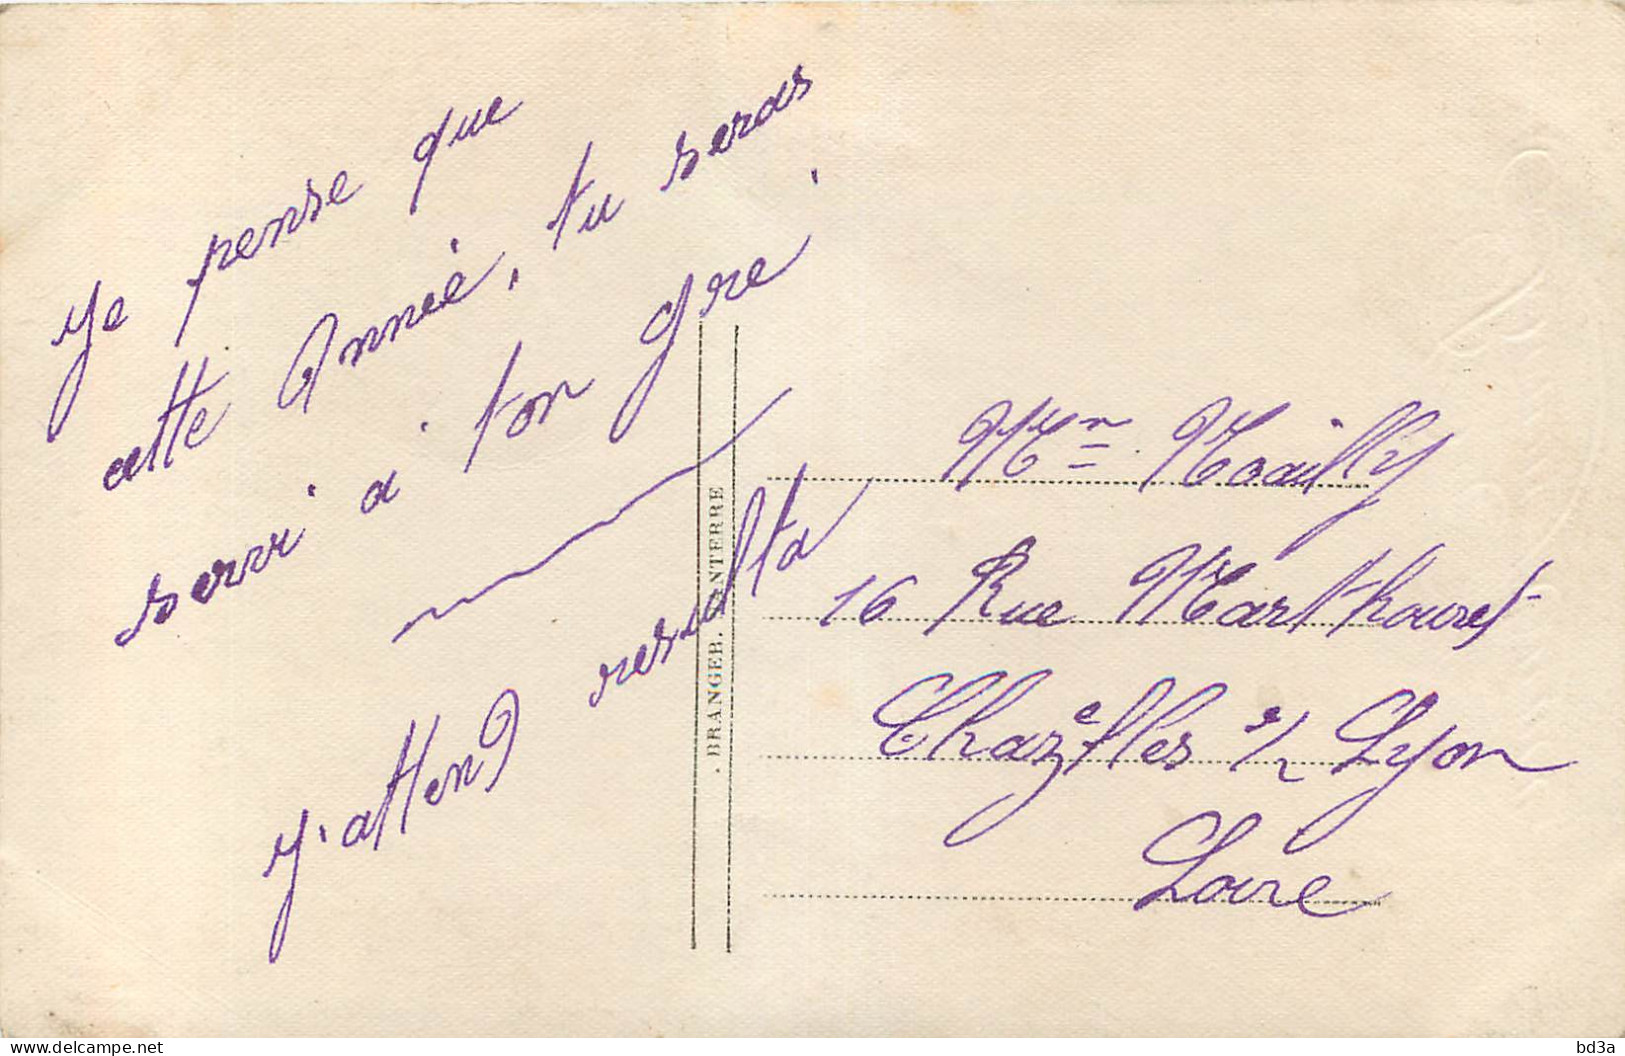 Je pense que
cette Année, tu seras
servi à ton gre.
J'attend resulta
. BRANGER. NANTERRE
Mr Mailly
16 Rue Marthouret
Chazelles s/ Lyon
Loire
delcampe.net
bd3a